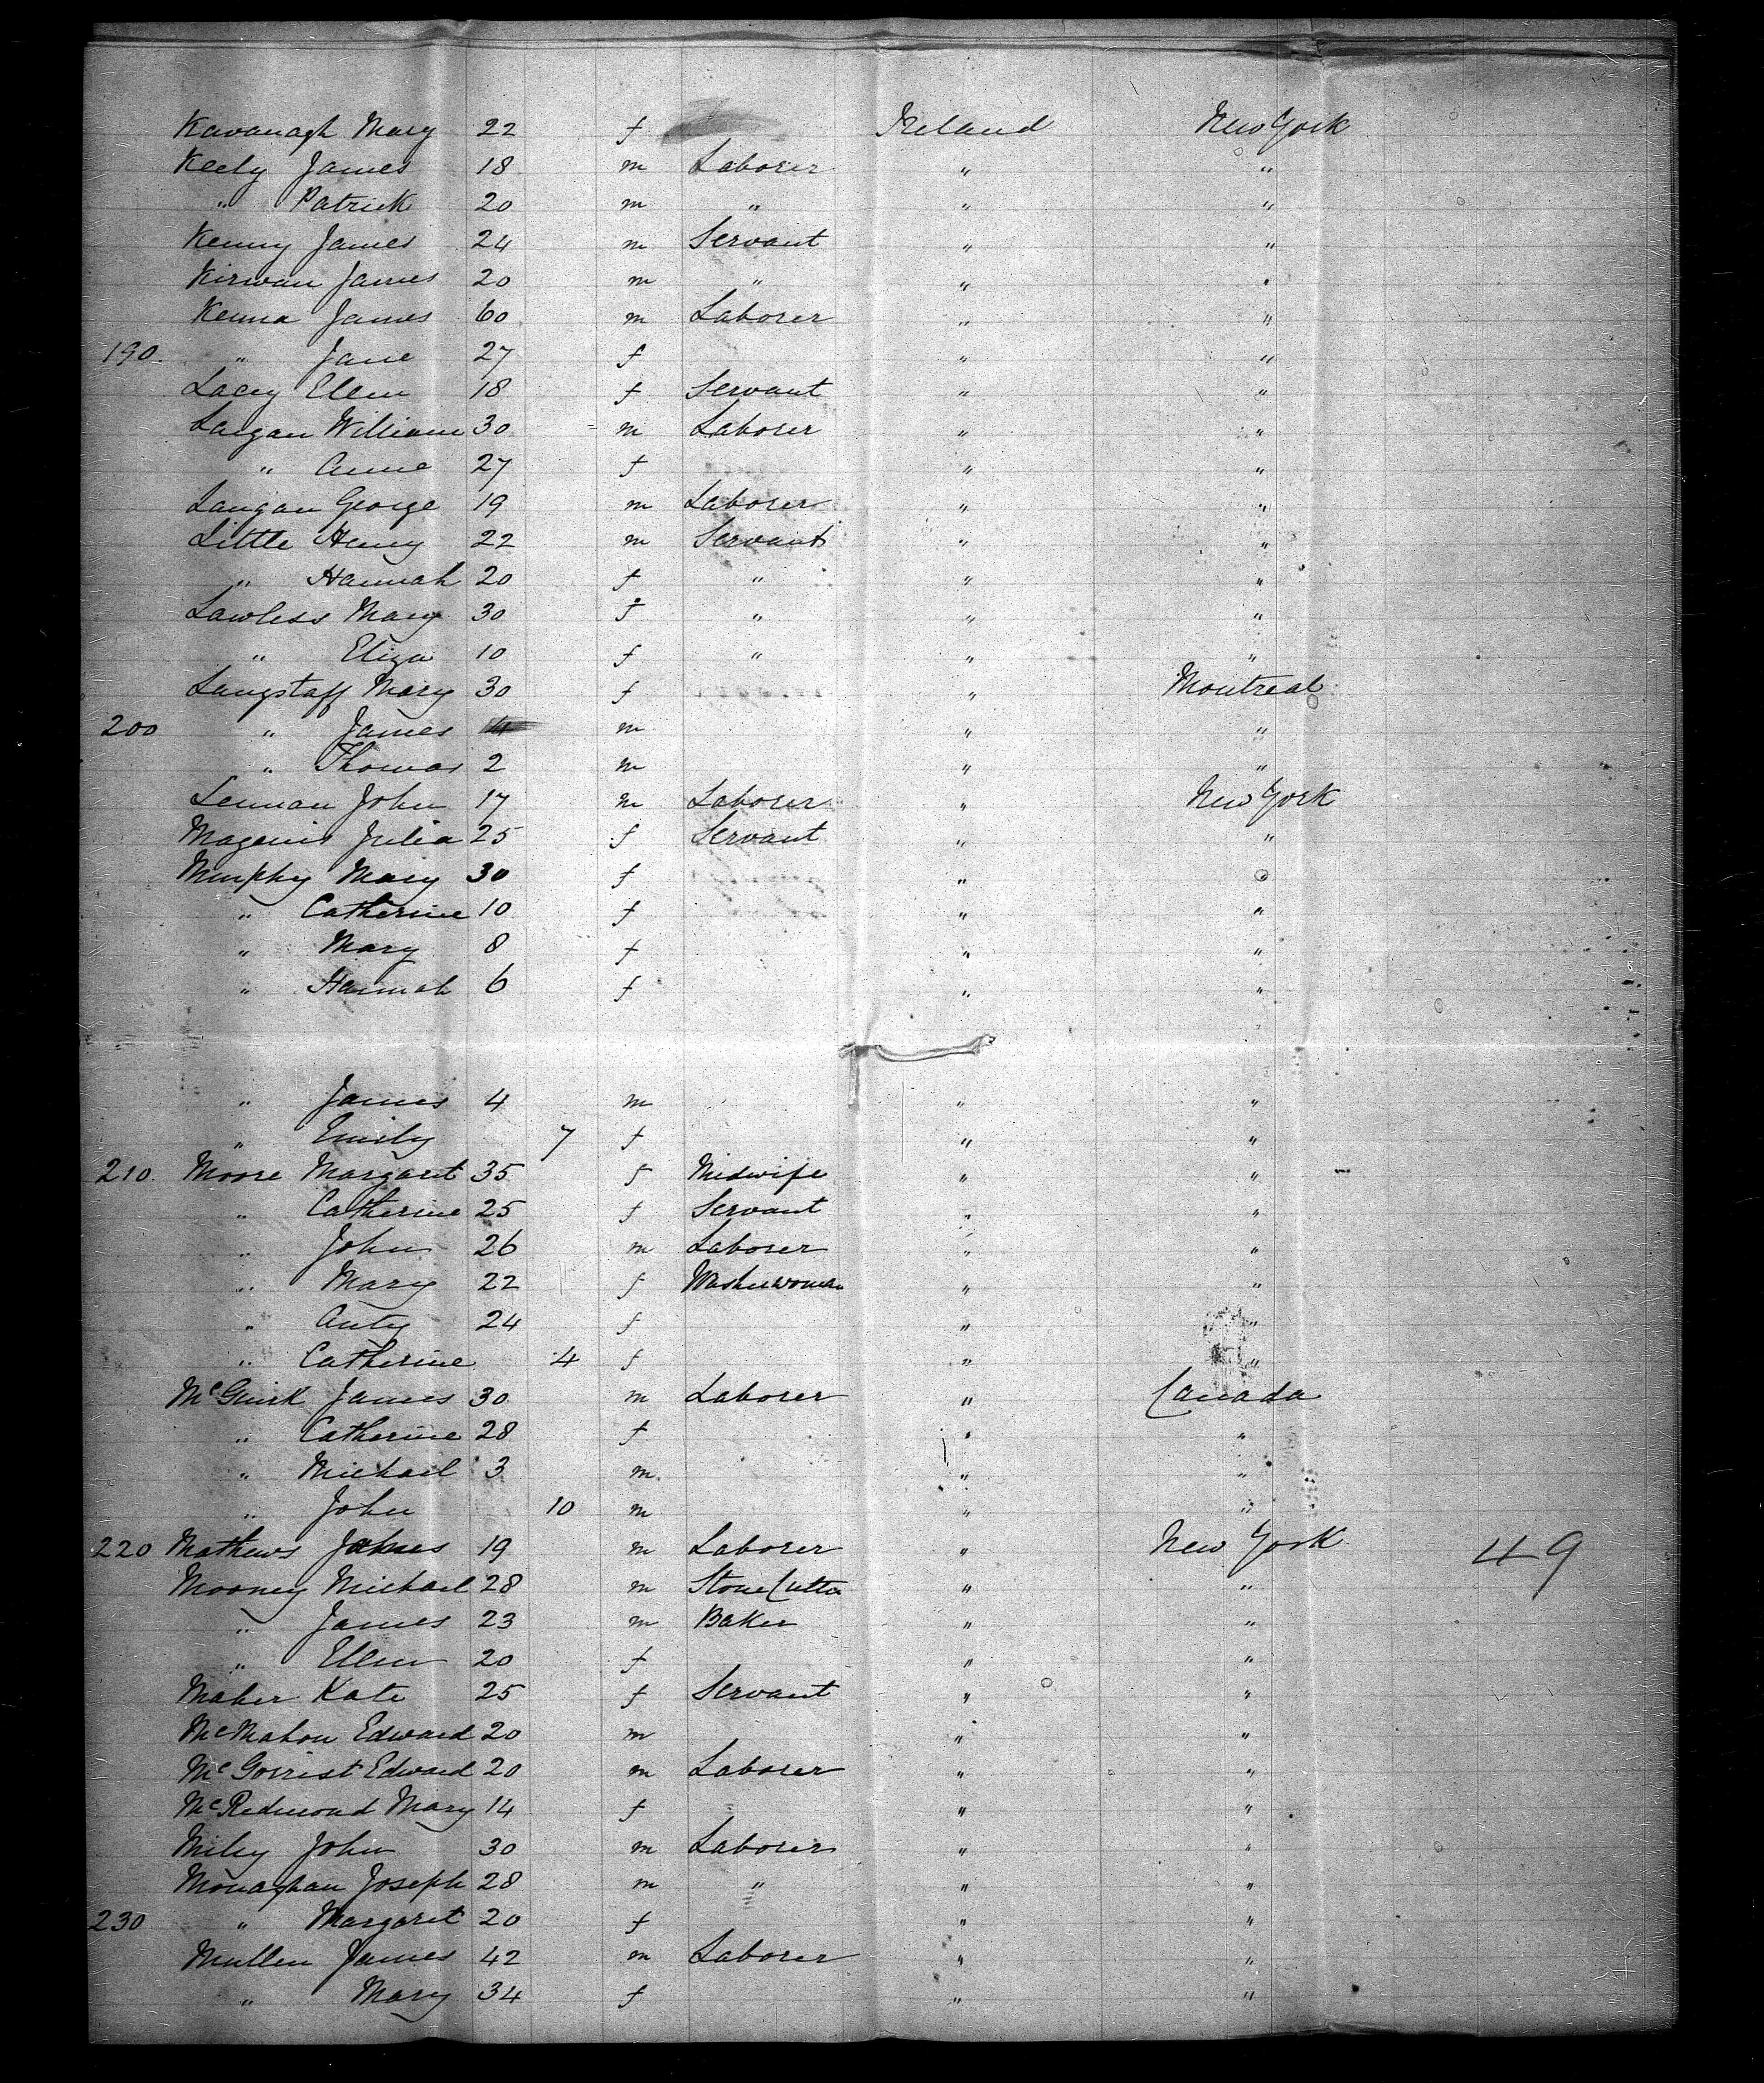 Kavanagh Mary 22 f Ireland New York
Keely James 18 m Laborer " "
" Patrick 20 m " " "
Kenny James 24 m Servant " "
Kirwan James 20 m " " "
Kenna James 60 m Laborer " "
190. " Jane 27 f " "
Lacey Ellen 18 f Servant " "
Langan William 30 m Laborer " "
" Anne 27 f " "
Langan George 19 m Laborer " "
Little Henry 22 m Servant " "
" Hannah 20 f " " "
Lawless Mary 30 f " " "
" Eliza 10 f " " "
Langstaff Mary 30 f " Montreal
200 " James 4 m " "
" Thomas 2 m " "
Lennan John 17 m Laborer " New York
Magenis Julia 25 f Servant " "
Murphy Mary 30 f " "
" Catherine 10 f " "
" Mary 8 f " "
" Hannah 6 f " "
" James 4 m " "
" Emily 7 f " "
210. Moore Margaret 35 f Midwife " "
" Catherine 25 f Servant " "
" John 26 m Laborer " "
" Mary 22 f Washerwoman " "
" Anty 24 f " "
" Catherine 4 f " "
McGuirk James 30 m Laborer " Canada
" Catherine 28 f " "
" Michael 3 m " "
" John 10 m " "
220 Mathews James 19 m Laborer " New York 49
Mooney Michael 28 m Stone Cutter " "
" James 23 m Baker " "
" Ellen 20 f " "
Maher Kate 25 f Servant " "
McMahon Edward 20 m " "
McGorrist Edward 20 m Laborer " "
McRedmond Mary 14 f " "
Miley John 30 m Laborer " "
Monaghan Joseph 28 m " " "
230 " Margaret 20 f " "
Mullen James 42 m Laborer " "
" Mary 34 f " "